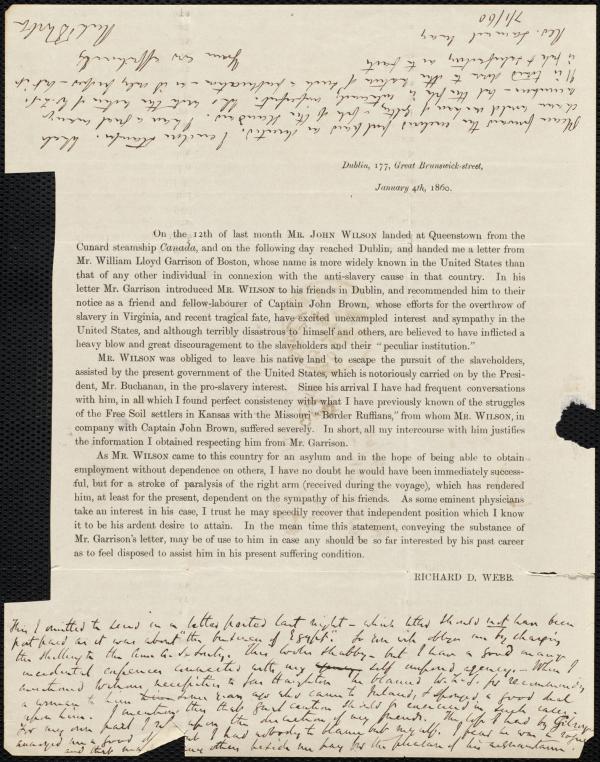 Dublin, 177, Great Brunswick-street,
January 4th, 1860.
On the 12th of last month MR. JOHN WILSON landed at Queenstown from the
Cunard steamship Canada, and on the following day reached Dublin, and handed me a letter from
Mr. William Lloyd Garrison of Boston, whose name is more widely known in the United States than
that of any other individual in connexion with the anti-slavery cause in that country. In his
letter Mr. Garrison introduced MR. WILSON to his friends in Dublin, and recommended him to their
notice as a friend and fellow-labourer of Captain John Brown, whose efforts for the overthrow of
slavery in Virginia, and recent tragical fate, have excited unexampled interest and sympathy in the
United States, and although terribly disastrous to himself and others, are believed to have inflicted a
heavy blow and great discouragement to the slaveholders and their "peculiar institution."
MR. WILSON was obliged to leave his native land, to escape the pursuit of the slaveholders,
assisted by the present government of the United States, which is notoriously carried on by the Presi-
dent, Mr. Buchanan, in the pro-slavery interest. Since his arrival I have had frequent conversations
with him, in all which I found perfect consistency with what I have previously known of the struggles
of the Free Soil settlers in Kansas with the Missouri "Border Ruffians," from whom MR. WILSON, in
company with Captain John Brown, suffered severely. In short, all my intercourse with him justifies
the information I obtained respecting him from Mr. Garrison.
As MR. WILSON came to this country for an asylum and in the hope of being able to obtain
employment without dependence on others, I have no doubt he would have been immediately success-
ful, but for a stroke of paralysis of the right arm (received during the voyage), which has rendered
him, at least for the present, dependent on the sympathy of his friends. As some eminent physicians
take an interest in his case, I trust he may speedily recover that independent position which I know
it to be his ardent desire to attain. In the mean time this statement, conveying the substance of
Mr. Garrison's letter, may be of use to him in case any should be so far interested by his past career
as to feel disposed to assist him in his present suffering condition.
RICHARD D. WEBB.
This I omitted to send in a letter posted last night – which letter should not have been
post paid as it was about "the burdens of Egypt." So you will oblige me by charging
the shilling to the Am. A. S. Society. This looks shabby – but I have a good many
incidental expenses connected with my self imposed agency. – When I
mentioned Wilson's necessities to
a woman to him some years ago who came to Ireland, & sponged a good deal
upon him. I mention this that great caution should be exercised in such cases.
For my own part I upon the discretion of my friends.
but I had nobody to blame but myself. I fear he was a rogue
and that many others beside me pay for the pleasure of his acquaintance.
Please forward the enclosed
Yours ever affectionately
Rich. D. Webb
Rev. Samuel May
7/1/60